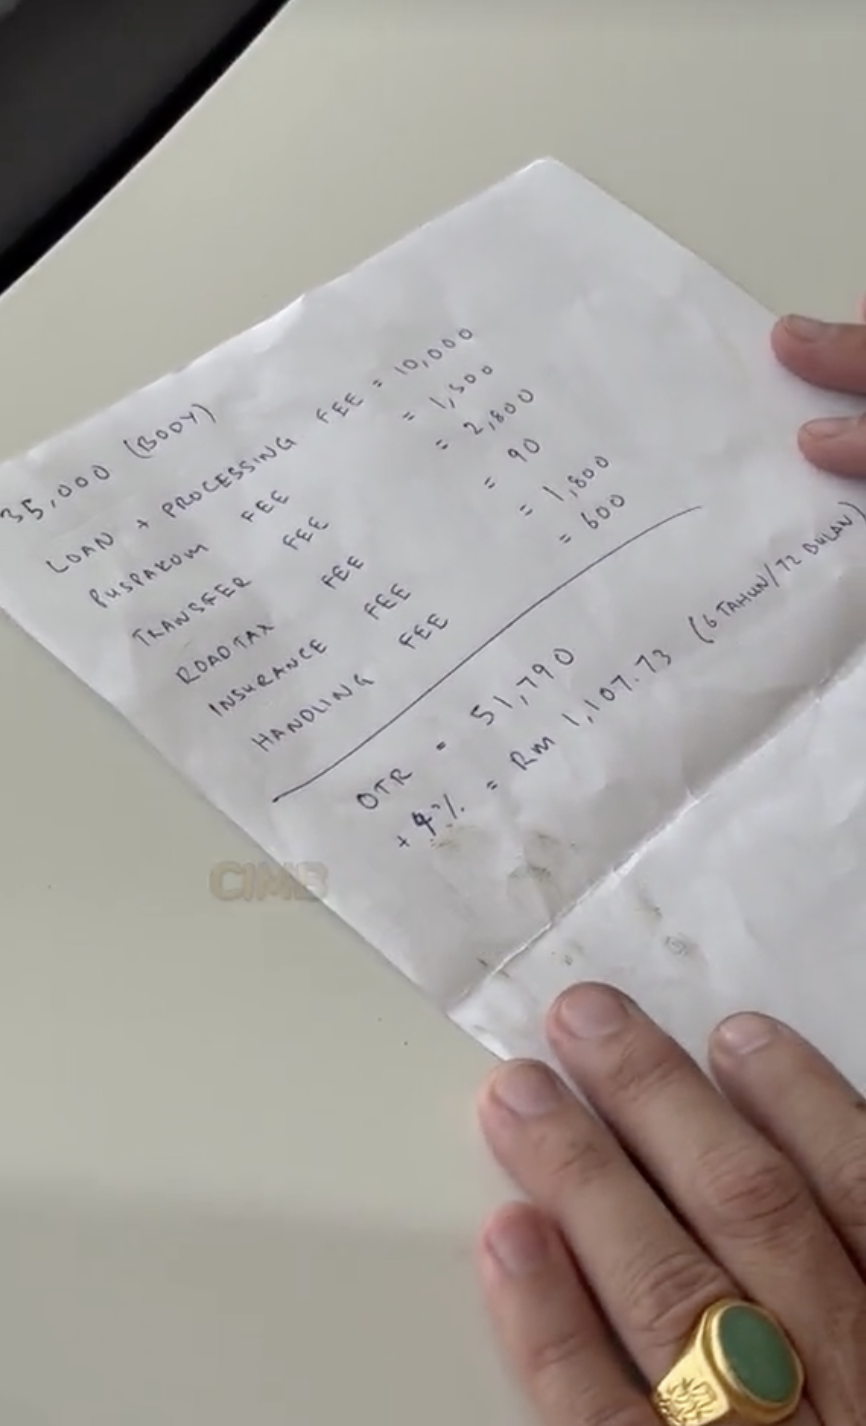 35,000 (BODY)
LOAN + PROCESSING FEE = 10,000
PUSPAKOM FEE = 1,500
TRANSFER FEE = 2,800
ROADTAX FEE = 90
INSURANCE FEE = 1,800
HANDLING FEE = 600
OTR = 51,790
+ 9% = RM 1,107.73 (6 TAHUN/72 BULAN)
CIMB